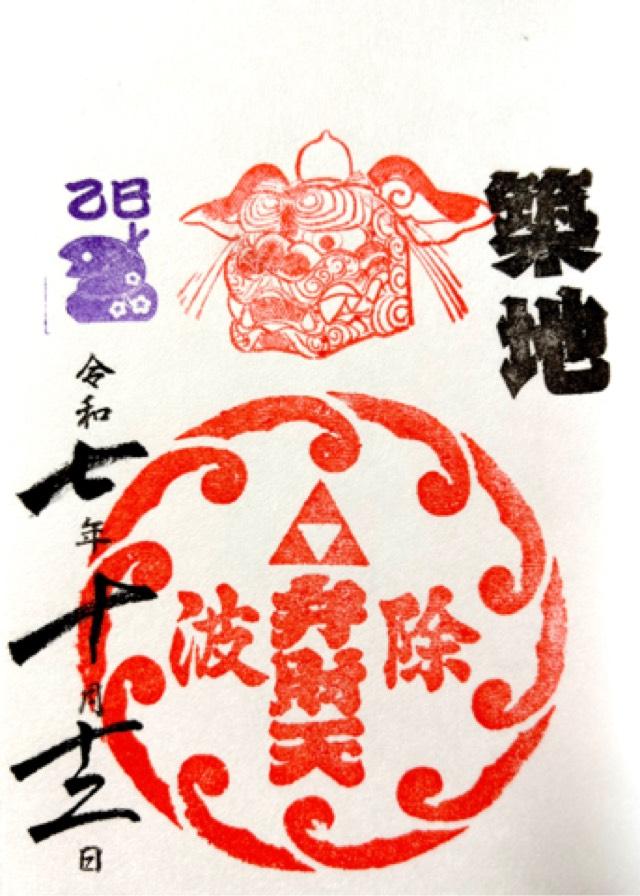 築地
波除
弁財天
乙巳
令和七年十月十二日